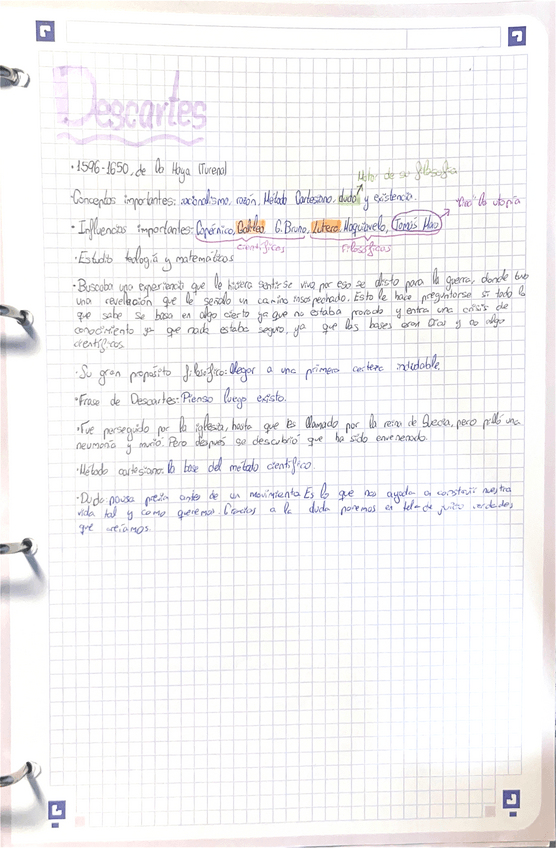 Descartes
·1596-1650, de la Haya (Turena)
Motor de su filosofía
·Conceptos importantes: racionalismo, razón, Método Cartesiano, duda y existencia.
"Crea" la utopía
·Influencias importantes: Copérnico, Galileo, G. Bruno, Lutero, Maquiavelo, Tomás Moro
científicos filosóficos
·Estudió teología y matemáticas
·Buscaba una experiencia que le hiciera sentirse vivo por eso se alistó para la guerra, donde tuvo
una revelación que le señaló un camino insospechado. Esto le hace preguntarse si todo lo
que sabe se basa en algo cierto ya que no estaba probado y entra una crisis de
conocimiento ya que nada estaba seguro, ya que las bases eran Dios y no algo
científicos.
·Su gran propósito filosófico: llegar a una primera certeza indudable
·Frase de Descartes: Pienso luego existo.
·Fue perseguido por la iglesia, hasta que es llamado por la reina de Suecia, pero pilló una
neumonía y murió. Pero después se descubrió que ha sido envenenado.
·Método cartesiano: la base del método científico.
·Duda pausa previa antes de un movimiento. Es lo que nos ayuda a construir nuestra
vida tal y como queremos. Gracias a la duda ponemos en tela de juicio verdades
que creíamos.